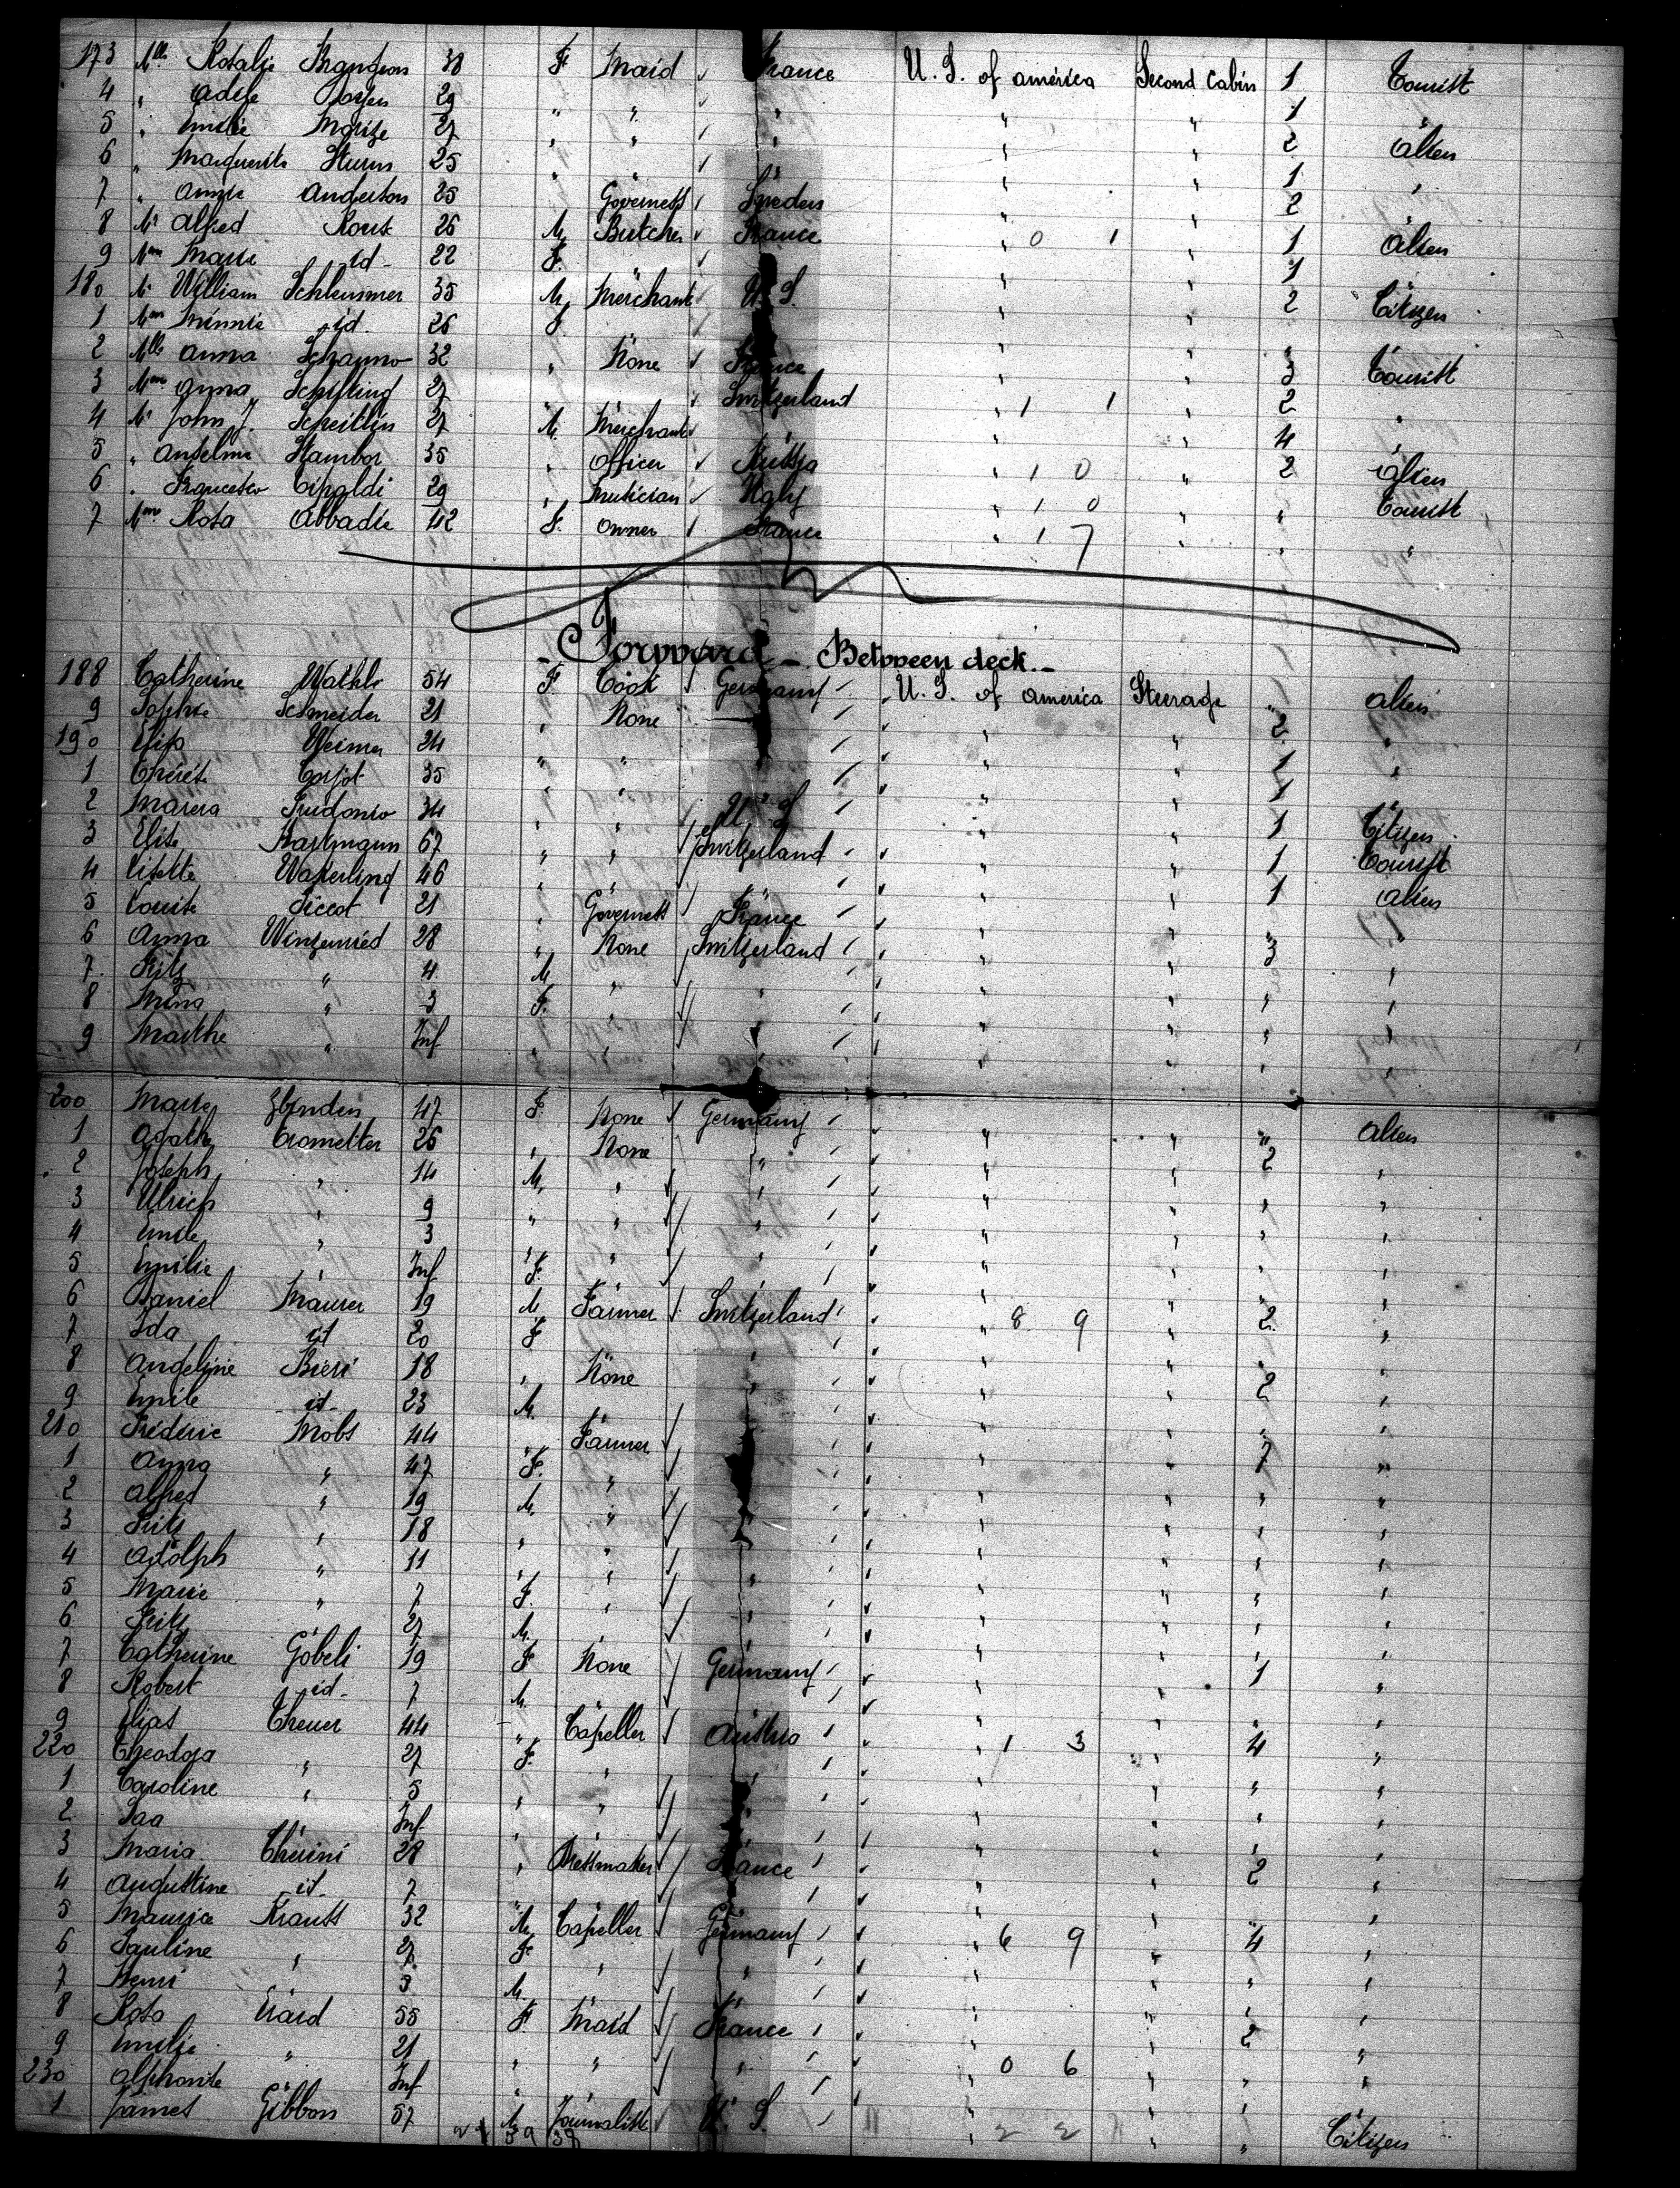 173 Mlle Rosalie 38 F Maid France U. S. of america Second Cabin 1 Tourist
4 " adèle 29 " " " " " 1 "
5 " Emilie 27 " " " " " 2 alien
6 " Marguerite Sturm 25 " " " " " 1 "
7 " annie anderson 25 Governess Sweden " " 2
8 Mr alfred Roux 26 M Butcher France " 0 1 " 1 alien
9 Mme Marie id- 22 F. " " 1
180 Mr William Schlemmer 35 M Merchant U. S. " " 2 Citizen
1 Mme Minnie id. 26 F " "
2 Mlle anna 32 " None France " " 3 Tourist
3 Mme anna Schilling 27 Switzerland " 1 1 " 2
4 Mr John J. Scheitlin 27 M. Merchant " " " 4 "
5 " Anselme Hambor 35 " Officer Russia " 1 0 " 2 alien
6 " Francesco Tipaldi 29 " Musician Italy " 1 0 " " Tourist
7 Mme Rosa Abbadie 42 F. owner France " 1 7 " " "
- Forward - Between deck. -
188 Catherine 54 F Cook Germany U. S. of america Steerage " alien
9 Sophie Schneider 21 " None " " 2 "
190 Elisa Weimer 24 " " " " 1 "
1 Thérèse 35 " " " " 1
2 34 " " U. S " " 1 Citizen
3 Elise Hartmann 67 " " Switzerland " " 1 Tourist
4 Lisette Waberling 46 " " " " 1 alien
5 Louise Siccot 21 " Governess France " "
6 anna Winzenried 28 " None Switzerland " " 3 "
7 Fritz " 4 M " " " " " "
8 Mina " 3 F. " " " " " "
9 Marthe " Inf " " " " " "
200 Marie Zbinden 47 F. None Germany " " " alien
1 agathe Trometter 26 " None " " " 2 "
2 Joseph " 14 M. " " " " " "
3 Ulrich " 9 " " " " " " "
4 Emile " 3 " " " " " " "
5 Emilie " Inf F. " " " " "
6 Daniel Maurer 19 M Farmer Switzerland " 8 9 " 2 "
7 Ida id 20 F " " "
8 angeline Bieri 18 " None " " " 2 "
9 Emile id- 23 M. " " " "
210 Frédéric Mobs 44 " Farmer " " 7 "
1 Anna " 47 F. " " " " "
2 alfred " 19 M " " " " "
3 Fritz " 18 " " " " " "
4 adolph " 11 " " " " " " "
5 Marie " 7 F. " " " " " "
6 Fritz 27 M. " " " "
7 Catherine Göbeli 19 F None Germany " " 1 "
8 Robert id- 7 M. " " "
9 Elias Theuer 44 " Capeller Austria " 1 3 " 4 "
220 Theodora " 27 F. " " " " " "
1 Caroline " 5 " " " " " "
2 Inf " " " " "
3 Maria Thérini 28 " Dressmaker France " " 2 "
4 augustine id- 7 " " " "
5 Maurice Krauss 32 M Capeller Germany " 6 9 " 4 "
6 Pauline " 27 F " " " " " "
7 Henri 3 M. " " " "
8 Rosa Erard 55 F. Maid France " " 2 "
9 Emilie " 21 " " " " 0 6 " " "
230 alphonse Inf " " " "
1 James Gibbon 57 M Journaliste U. S. " 2 2 " " Citizen